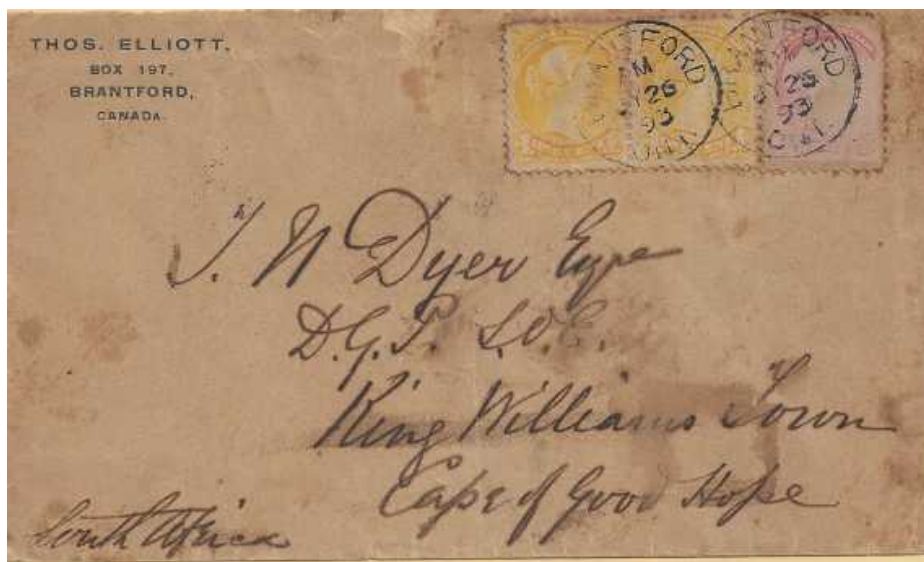 THOS. ELLIOTT,
BOX 197,
BRANTFORD,
CANADA.
NTFORD
M
26
93
ONT
NTFORD
M
26
93
ONT
J. W Dyer Esqre
D.G.P. L.O.L.
King Williams Town
Cape of Good Hope
South Africa